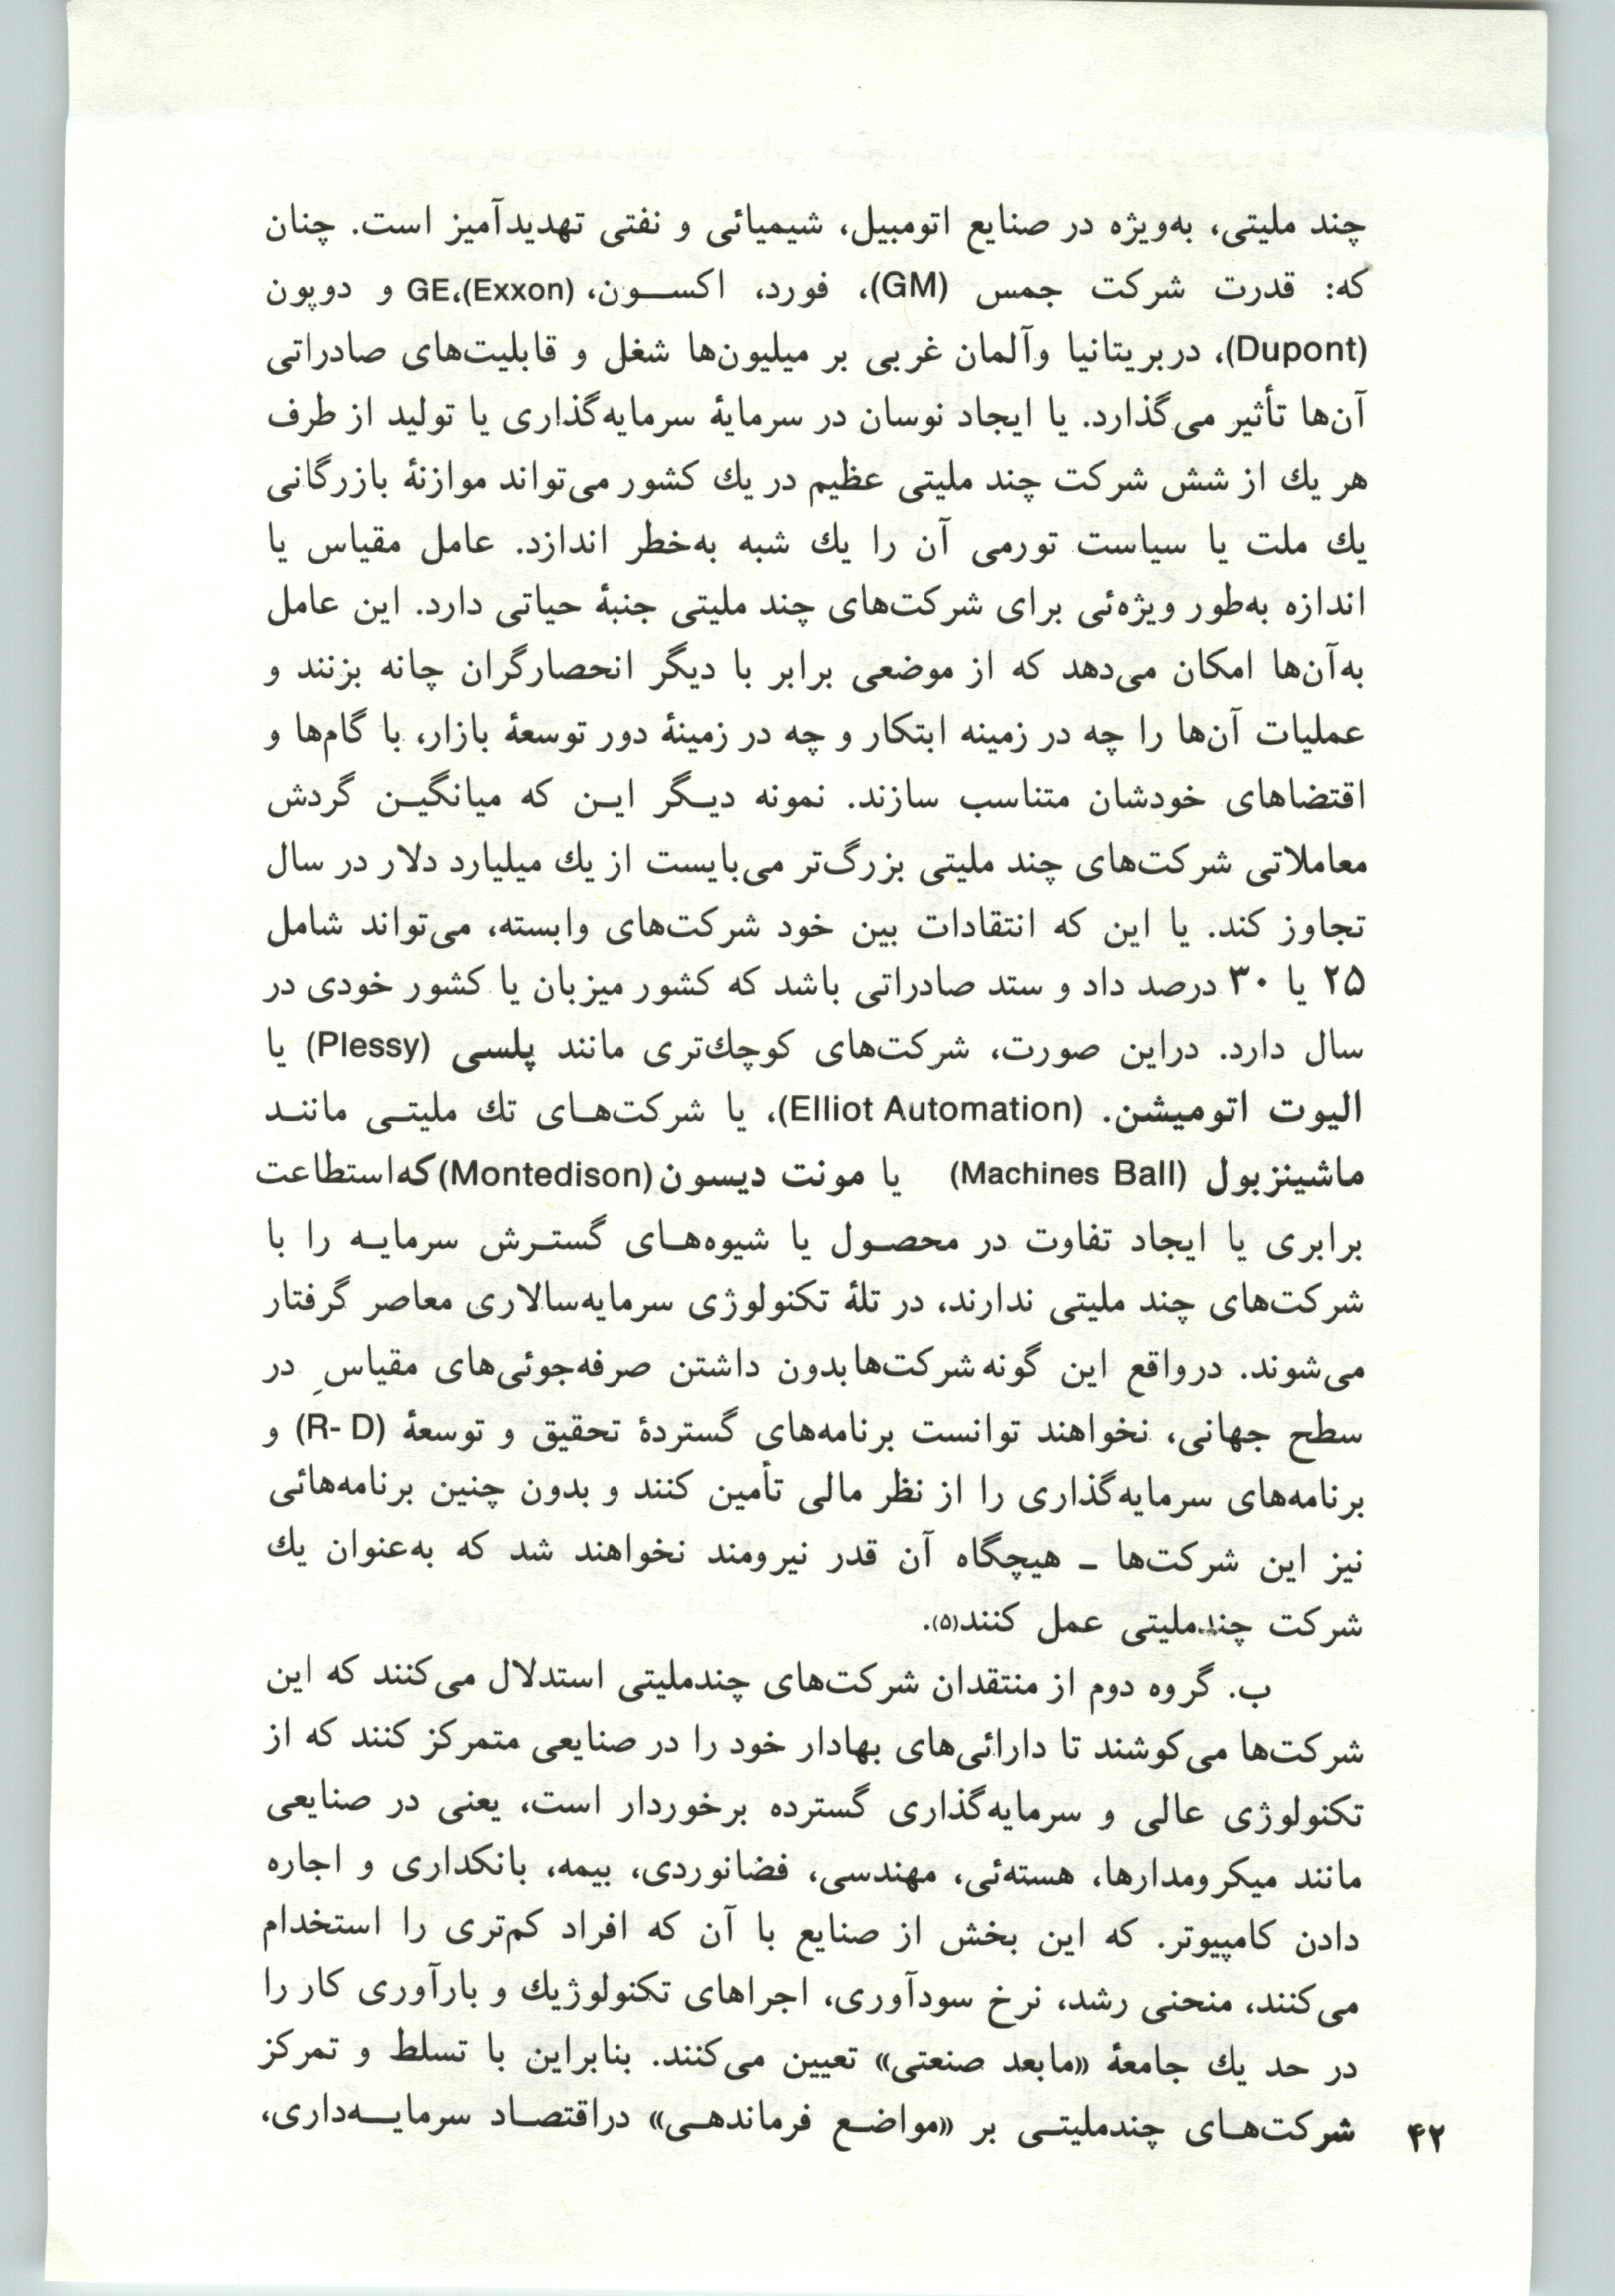 چند ملیتی، به‌ویژه در صنایع اتومبیل، شیمیائی و نفتی تهدیدآمیز است. چنان
که: قدرت شرکت جمس (GM)، فورد، اکســون، (Exxon)،GE و دوپون
(Dupont)، دربریتانیا وآلمان غربی بر میلیون‌ها شغل و قابلیت‌های صادراتی
آن‌ها تأثیر می‌گذارد. یا ایجاد نوسان در سرمایۀ سرمایه‌گذاری یا تولید از طرف
هر یك از شش شرکت چند ملیتی عظیم در یك کشور می‌تواند موازنۀ بازرگانی
یك ملت یا سیاست تورمی آن را یك شبه به‌خطر اندازد. عامل مقیاس یا
اندازه به‌طور ویژه‌ئی برای شرکت‌های چند ملیتی جنبۀ حیاتی دارد. این عامل
به‌آن‌ها امکان می‌دهد که از موضعی برابر با دیگر انحصارگران چانه بزنند و
عملیات آن‌ها را چه در زمینه ابتکار و چه در زمینۀ دور توسعۀ بازار، با گام‌ها و
اقتضاهای خودشان متناسب سازند. نمونه دیـگر ایـن که میانگیـن گردش
معاملاتی شرکت‌های چند ملیتی بزرگ‌تر می‌بایست از یك میلیارد دلار در سال
تجاوز کند. یا این که انتقادات بین خود شرکت‌های وابسته، می‌تواند شامل
۲۵ یا ۳۰ درصد داد و ستد صادراتی باشد که کشور میزبان یا کشور خودی در
سال دارد. دراین صورت، شرکت‌های کوچك‌تری مانند پلسی (Plessy) یا
الیوت اتومیشن. (Elliot Automation)، یا شرکت‌هـای تك ملیتـی ماننـد
ماشینزبول (Machines Ball) یا مونت دیسون (Montedison) که‌استطاعت
برابری یا ایجاد تفاوت در محصـول یا شیوه‌هـای گستـرش سرمایـه را با
شرکت‌های چند ملیتی ندارند، در تلۀ تکنولوژی سرمایه‌سالاری معاصر گرفتار
می‌شوند. درواقع این گونه شرکت‌ها بدون داشتن صرفه‌جوئی‌های مقیاسِ در
سطح جهانی، نخواهند توانست برنامه‌های گستردۀ تحقیق و توسعۀ (R- D) و
برنامه‌های سرمایه‌گذاری را از نظر مالی تأمین کنند و بدون چنین برنامه‌هائی
نیز این شرکت‌ها ـ هیچگاه آن قدر نیرومند نخواهند شد که به‌عنوان یك
شرکت چندملیتی عمل کنند(۵).
ب. گروه دوم از منتقدان شرکت‌های چندملیتی استدلال می‌کنند که این
شرکت‌ها می‌کوشند تا دارائی‌های بهادار خود را در صنایعی متمرکز کنند که از
تکنولوژی عالی و سرمایه‌گذاری گسترده برخوردار است، یعنی در صنایعی
مانند میکرومدارها، هسته‌ئی، مهندسی، فضانوردی، بیمه، بانکداری و اجاره
دادن کامپیوتر. که این بخش از صنایع با آن که افراد کم‌تری را استخدام
می‌کنند، منحنی رشد، نرخ سودآوری، اجراهای تکنولوژیك و بارآوری کار را
در حد یك جامعۀ «مابعد صنعتی» تعیین می‌کنند. بنابراین با تسلط و تمرکز
شرکت‌هـای چندملیتـی بر «مواضـع فرماندهـی» دراقتصـاد سرمایــه‌داری،
۴۲